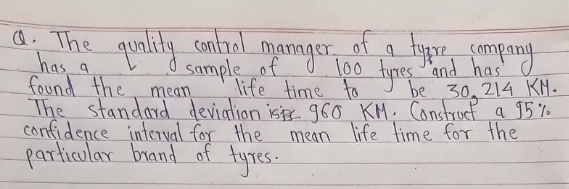 Q. The quality control manager of a tyre company
has a sample of 100 tyres and has
found the mean life time to be 30,214 KM.
The standard deviation is 960 KM. Construct a 95%
confidence interval for the mean life time for the
particular brand of tyres.